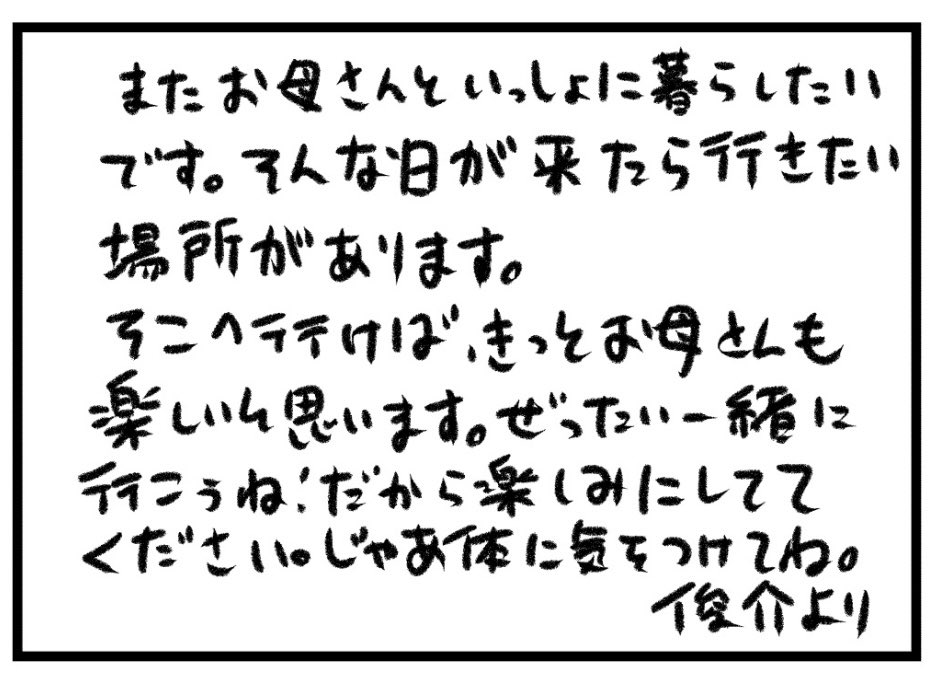 またお母さんといっしょに暮らしたい
です。そんな日が来たら行きたい
場所があります。
そこへ行けば、きっとお母さんも
楽しいと思います。ぜったい一緒に
行こうね!だから楽しみにしてて
ください。じゃあ体に気をつけてね。
俊介より